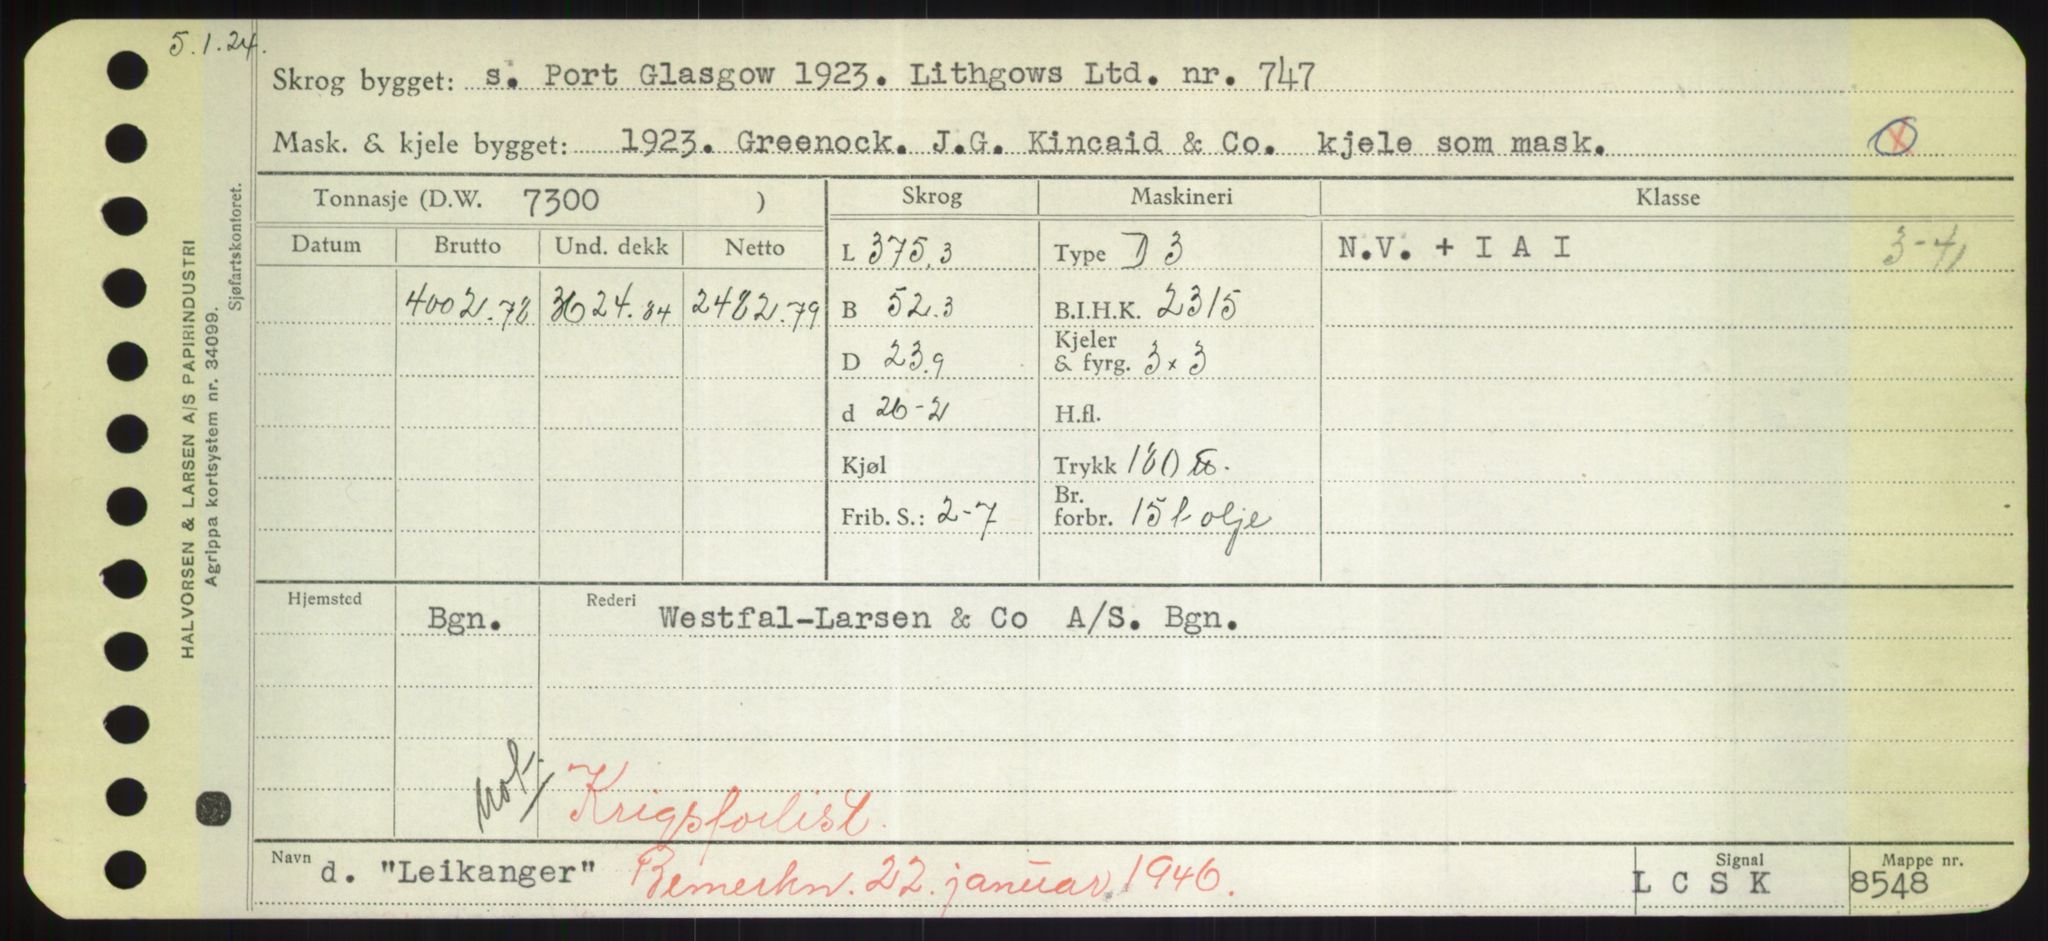 5.1.24.
Skrog bygget: s. Port Glasgow 1923. Lithgows Ltd. nr. 747
Mask. & kjele bygget: 1923. Greenock. J.G. Kincaid & Co. kjele som mask.
Tonnasje (D.W. 7300 ) Skrog Maskineri Klasse
Datum Brutto Und. dekk Netto L 375.3 Type D 3 N.V. + I A I 3-41
4002.78 3624.84 2482.79 B 52.3 B.I.H.K. 2315
D 23.9 Kjeler & fyrg. 3 x 3
d 26-2 H.fl.
Kjøl Trykk 180
Frib. S.: 2-7 Br. forbr. 15 t olje
Hjemsted Bgn. Rederi Westfal-Larsen & Co A/S. Bgn.
Krigsforlist.
Navn d. "Leikanger" Bemerkn. 22. januar 1946. Signal L C S K Mappe nr. 8548
HALVORSEN & LARSEN A/S PAPIRINDUSTRI
Agrippa kortsystem nr. 34099.
Sjøfartskontoret.